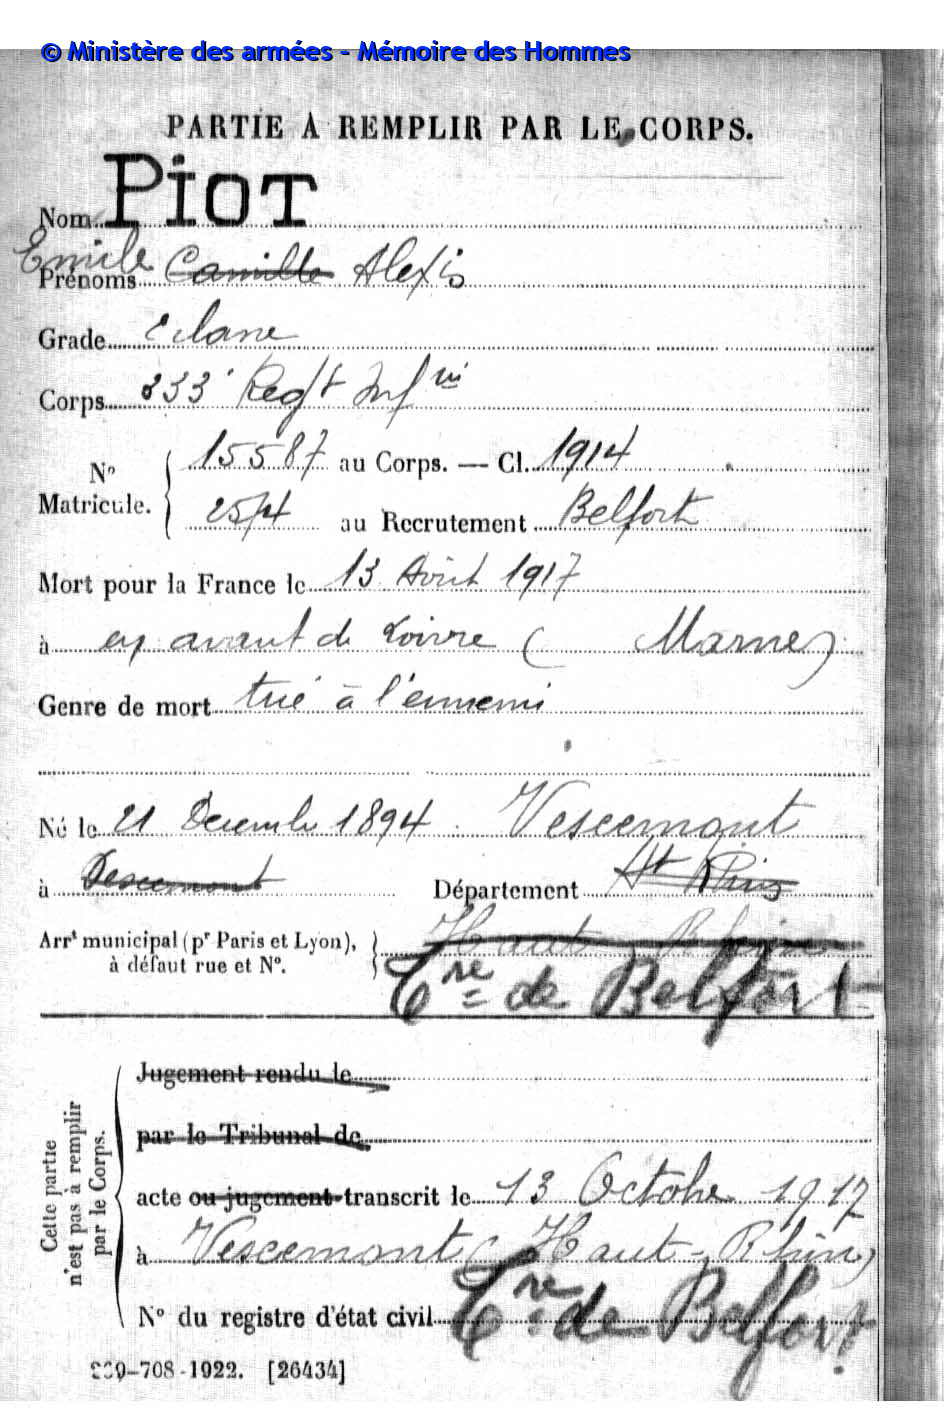 © Ministère des armées - Mémoire des Hommes
PARTIE A REMPLIR PAR LE CORPS.
Nom PIOT
Emile
Prénoms Camille Alexis
Grade
Corps 333e Regt Infrie
15587 au Corps. — Cl. 1914
No
Matricule.
2514 au Recrutement Belfort
Mort pour la France le 13 Août 1917
à en avant de Loivre ( Marne)
Genre de mort tué à l'ennemi
Né le 21 Decembre 1894 Vescemont
à Descemont Département Ht Rhin
Arrt municipal (pr Paris et Lyon), Haut Rhin
à défaut rue et No. Tre de Belfort
Cette partie
n'est pas à remplir
par le Corps.
Jugement rendu le
par le Tribunal de
acte ou jugement transcrit le 13 Octobre 1917
à Vescemont (Haut-Rhin)
No du registre d'état civil Tre de Belfort
-708-1922. [26434]